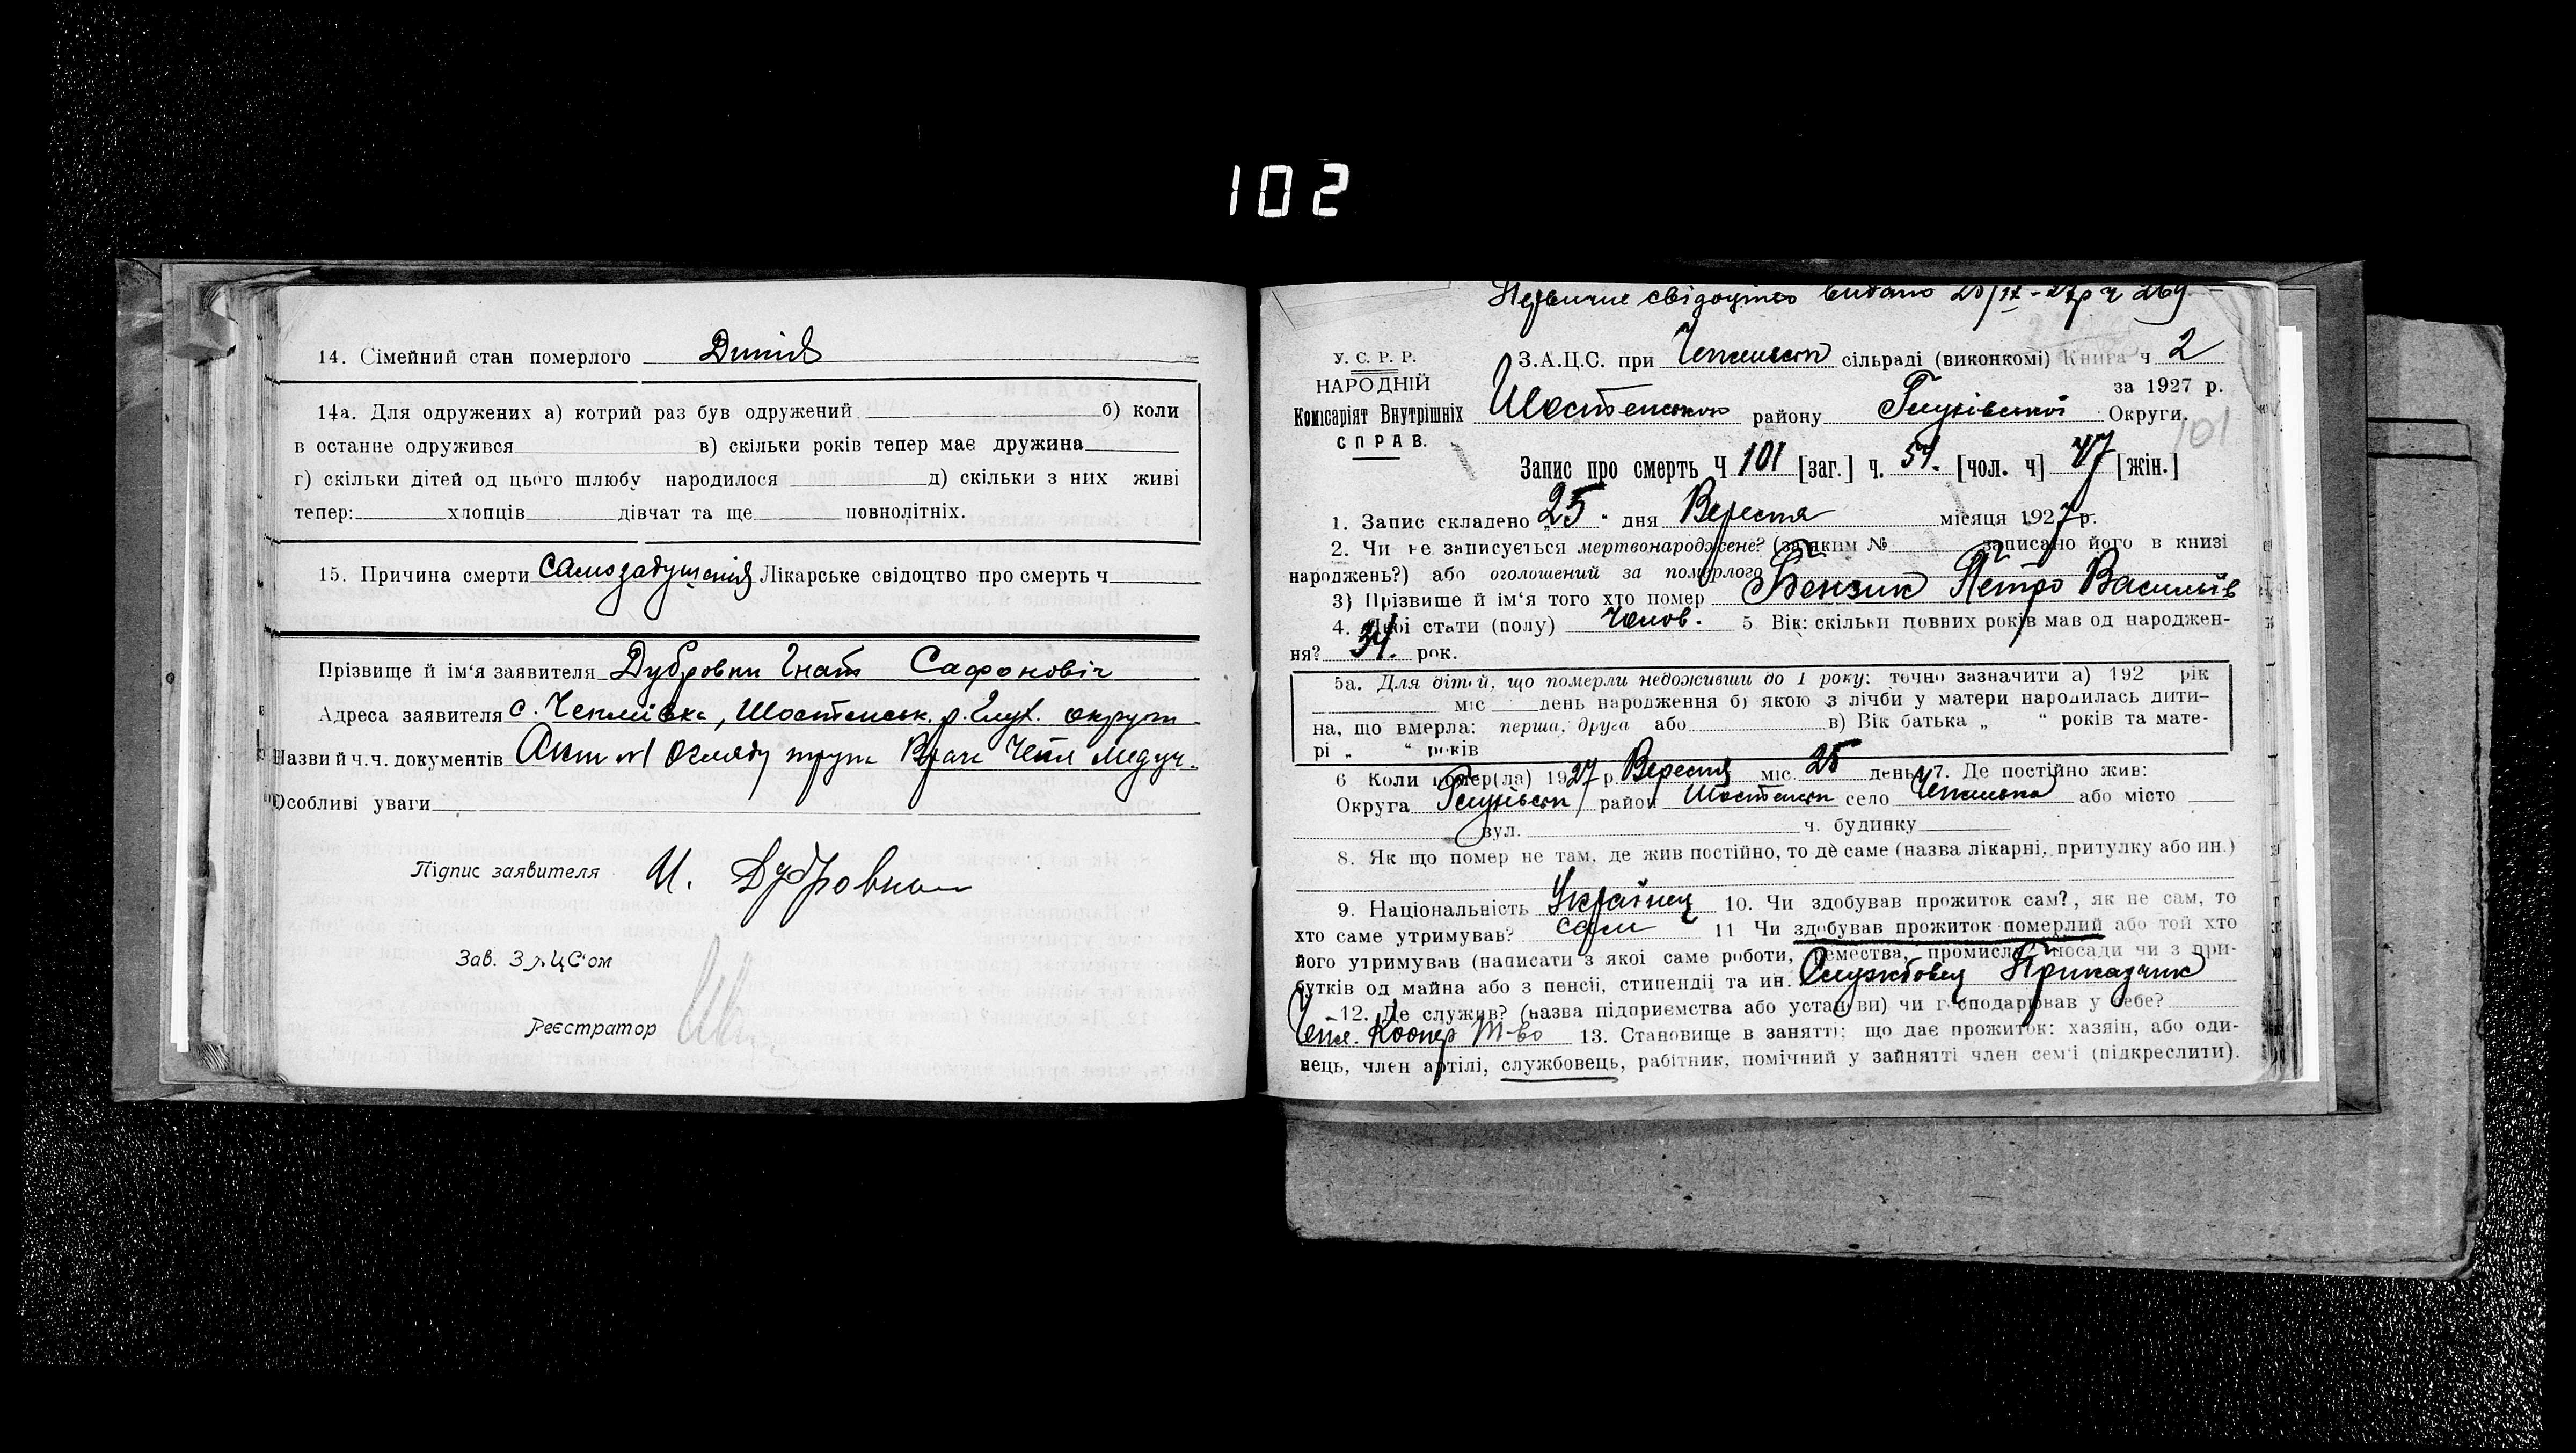 102
14. Сімейний стан померлого
14а. Для одружених а) котрий раз був одружений б) коли
в останне одружився в) скільки років тепер має дружина
г) скільки дітей од цього шлюбу народилося д) скільки з них живі
тепер: хлопців дівчат та ще повнолітніх.
15. Причина смерти самозадушенія Лікарське свідоцтво про смерть ч
Прізвище й ім‘я заявителя Дубровни Гнат Сафоновіч
Адреса заявителя с. Чепліївка, Шостенськ. р. Глух. округи
Назви й ч.ч. документів Акт №1 Огляду трупа Врач Чепл медуч.
Особливі уваги
Підпис заявителя И. Дубровн
Зав. ЗАЦС‘ом
Реєстратор
свідоцтво видано - 27р ч 269
У. С. Р. Р.
НАРОДНІЙ
Комісаріят Внутрішніх
СПРАВ.
З.А.Ц.С. при сільраді (виконкомі) Книга ч 2
за 1927 р.
Шостенського району Глухівської Округи.
101
Запис про смерть Ч 101 [заг.] ч. 54. [чол. ч] 47 [жін.]
1. Запис складено „25“ дня Вересня місяця 1927 р.
2. Чи не записується мертвонароджене? (за яким № записано його в книзі
народжень?) або оголошений за померлого
3) Прізвище й ім‘я того хто помер Бензик Петро Василів
4. Якої стати (полу) Чолов. 5 Вік: скільки повних років мав од народжен-
ня? 34. рок.
5а. Для дітей, що померли недоживши до 1 року: точно зазначити а) 192 рік
міс день народження б) якою з лічби у матери народилась дити-
на, що вмерла: перша, друга або в) Вік батька „ “ років та мате-
рі „ “ років
6 Коли помер(ла) 1927 р Вересня міс 25 день 7. Де постійно жив:
Округа Глухівськ район Шостенськ село або місто
вул. ч. будинку
8. Як що помер не там, де жив постійно, то де саме (назва лікарні, притулку або ин.)
9. Національність Українец 10. Чи здобував прожиток сам?, як не сам, то
хто саме утримував? сам 11 Чи здобував прожиток померлий або той хто
його утримував (написати з якої саме роботи, ремества, промисла, посади чи з при-
бутків од майна або з пенсії, стипендії та ин. Службовец Приказчик
12. Де служив? (назва підприемства або установи) чи господарював у себе?
Чепл. Коопер т-во 13. Становище в занятті: що дає прожиток: хазяїн, або оди-
нець, член артілі, службовець, рабітник, помічний у зайнятті член сем‘ї (підкреслити).